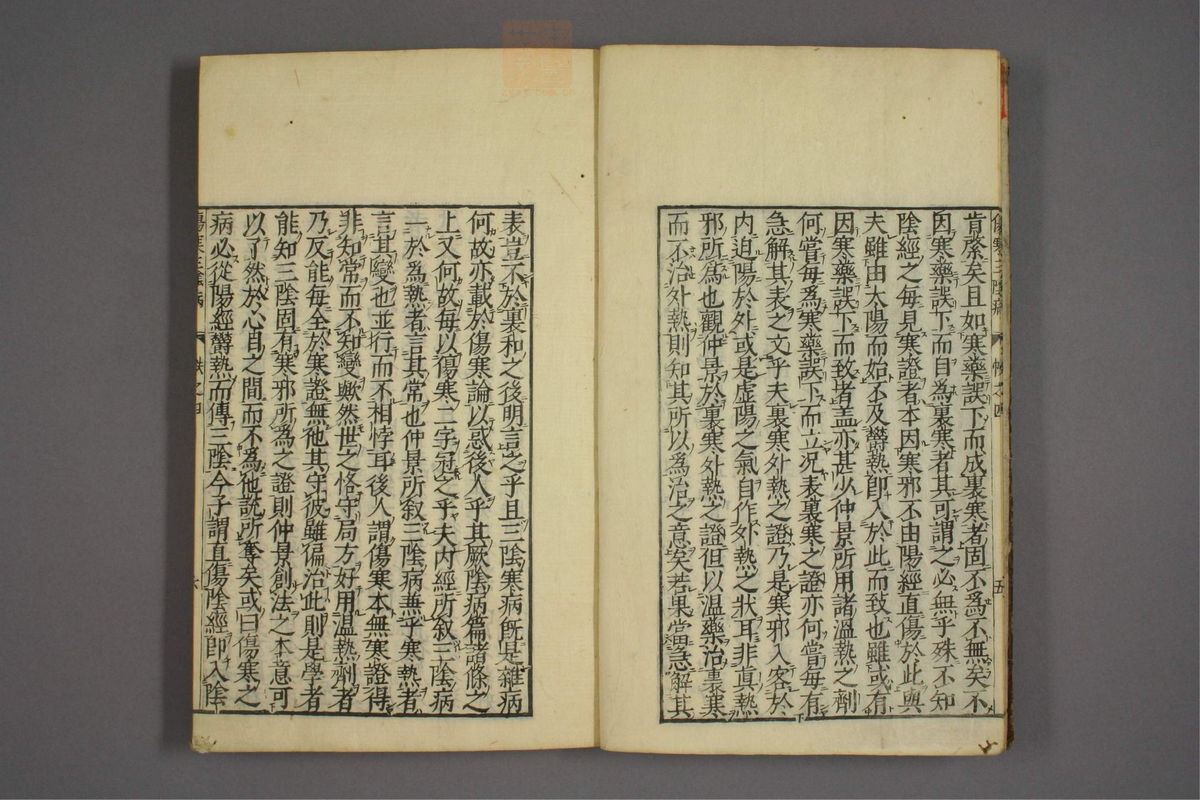 傷寒三陰病 帙之四 五
肯綮矣且如寒藥誤下而成裏寒者固不爲不無矣不
因寒藥誤下而自爲裏寒者其可謂之必無乎殊不知
陰經之每見寒證者本因寒邪不由陽經直傷於此與
夫雖由太陽而始不及鬱熱即入於此而致也雖或有
因寒藥誤下而致者盖亦甚少仲景所用諸溫熱之劑
何嘗每爲寒藥誤下而立況表裏寒之證亦何嘗每有
急解其表之文乎夫裏寒外熱之證乃是寒邪入客於
内迫陽於外或是虚陽之氣自作外熱之狀耳非真熱
邪所爲也觀仲景於裏寒外熱之證但以温藥治裏寒
而不治外熱則知其所以爲治之意矣若果當急解其
表豈不於裏和之後明言之乎且三陰寒病既是雜病
何故亦載於傷寒論以惑後人乎其厥陰病篇諸條之
上又何故每以傷寒二字冠之乎夫内經所叙三陰病
一於爲熱者言其常也仲景所叙三陰病兼乎寒熱者
言其變也並行而不相悖耳後人謂傷寒本無寒證得
非知常而不知變歟然世之恪守局方好用温熱劑者
乃反能每全於寒證無他其守彼雖偏治此則是學者
能知三陰固有寒邪所爲之證則仲景創法之本意可
以了然於心目之間而不爲他説所奪矣或曰傷寒之
病必從陽經鬱熱而傳三陰今子謂直傷陰經即入陰
傷寒三陰病 帙之四 六